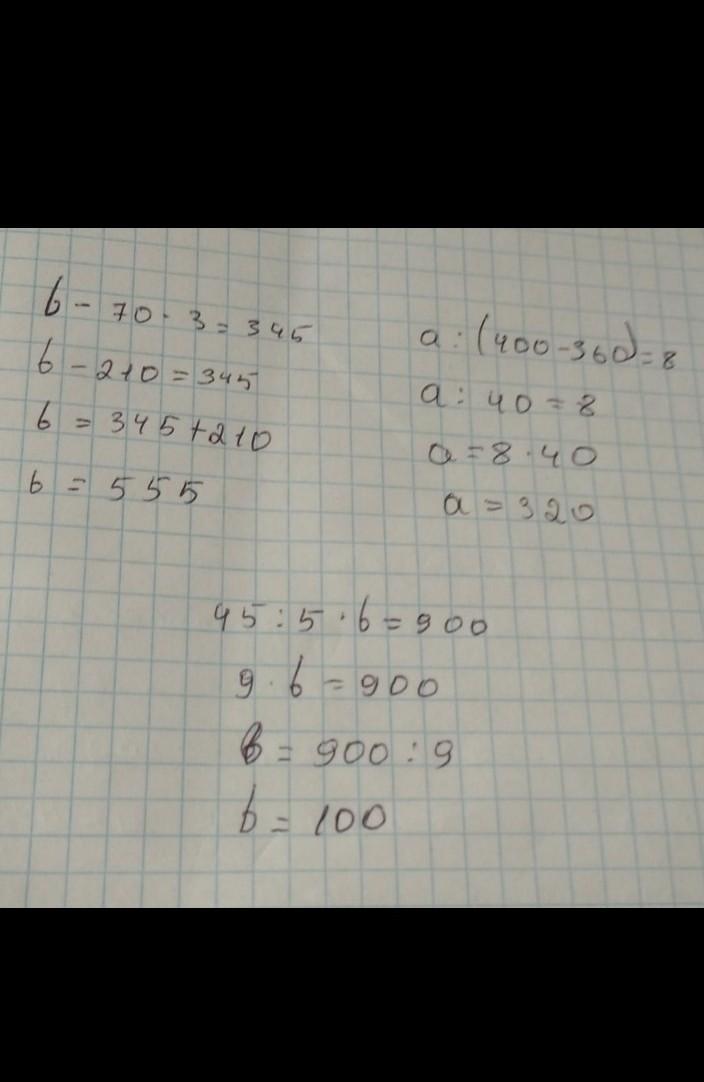 b - 70 · 3 = 345
b - 210 = 345
b = 345 + 210
b = 555
a : (400 - 360) = 8
a : 40 = 8
a = 8 · 40
a = 320
45 : 5 · b = 900
9 · b = 900
b = 900 : 9
b = 100